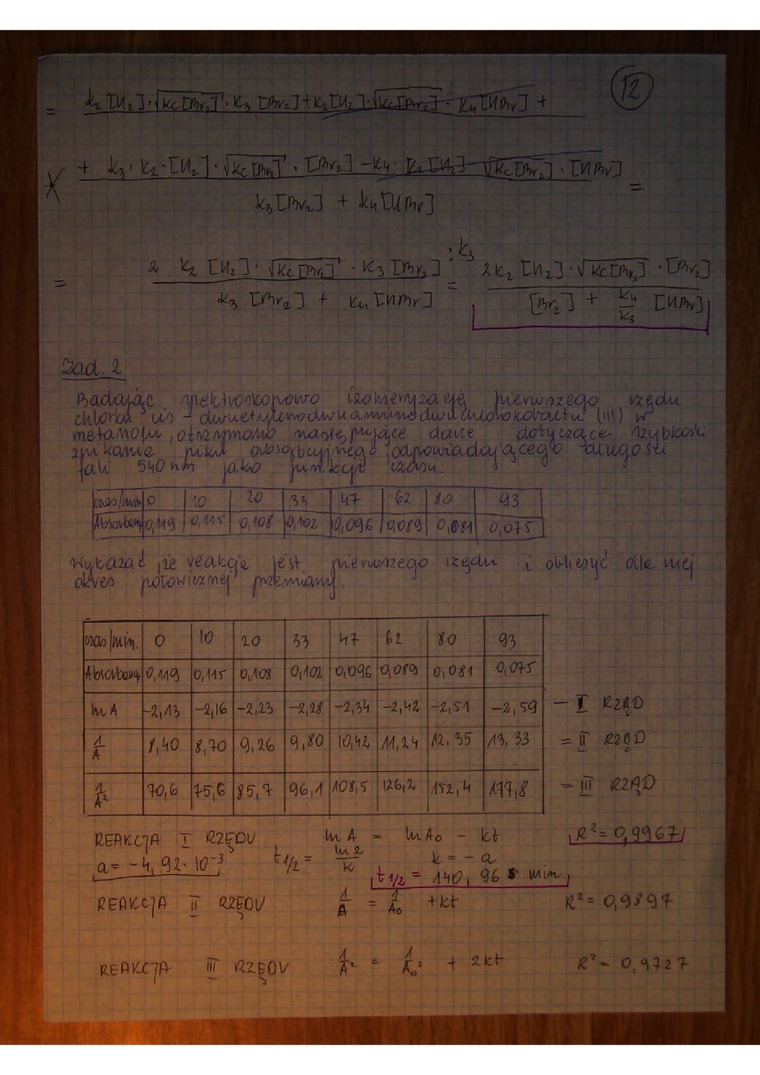 12
= k₂[H₂]·√Kc[Br₂]·k₃[Br₂]+k₂[H₂]·√Kc[Br₂]·k₄[HBr] +
+ k₃·k₂·[H₂]·√Kc[Br₂]·[Br₂] - k₄·k₂[H₂]·√Kc[Br₂]·[HBr] =
k₃[Br₂] + k₄[HBr]
= 2 k₂[H₂]·√Kc[Br₂]·k₃[Br₂] :k₃ = 2k₂[H₂]·√Kc[Br₂]·[Br₂]
k₃[Br₂] + k₄[HBr] [Br₂] + k₄/k₃ [HBr]
Zad. 2
Badając spektroskopowo izomeryzację pierwszego rzędu
chlorku cis-dwuetylenodwuaminodwuchlorokobaltu (III) w
metanolu, otrzymano następujące dane dotyczące szybkości
zanikania piku absorbcyjnego odpowiadającego długości
fali 540 nm jako funkcję czasu:
czas/min 0 10 20 33 47 62 80 93
Absorbancja 0,119 0,115 0,108 0,102 0,096 0,089 0,081 0,075
Wykazać, że reakcja jest pierwszego rzędu i obliczyć dla niej
okres połowicznej przemiany.
czas/min. 0 10 20 33 47 62 80 93
Absorbancja 0,119 0,115 0,108 0,102 0,096 0,089 0,081 0,075
ln A -2,13 -2,16 -2,23 -2,28 -2,34 -2,42 -2,51 -2,59 - I RZĄD
1/A 8,40 8,70 9,26 9,80 10,42 11,24 12,35 13,33 = II RZĄD
1/A² 70,6 75,6 85,7 96,1 108,5 126,2 152,4 177,8 - III RZĄD
REAKCJA I RZĘDU ln A = ln A₀ - kt R² = 0,9967
a = -4,92·10⁻³ t₁/₂ = ln2/k k = -a
t₁/₂ = 140,96 min
REAKCJA II RZĘDU 1/A = 1/A₀ + kt R² = 0,9897
REAKCJA III RZĘDU 1/A² = 1/A₀² + 2kt R² = 0,9727